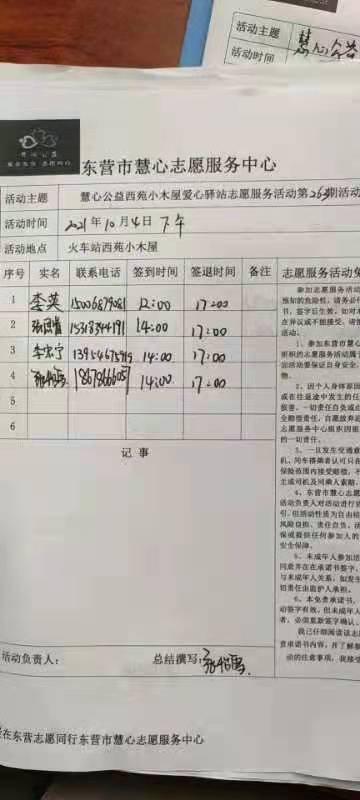 活动主题
慧心公益
活动时间
东营市慧心志愿服务中心
活动主题 慧心公益西苑小木屋爱心驿站志愿服务活动第263期活动
活动时间 2021年10月4日 下午
活动地点 火车站西苑小木屋
序号 实名 联系电话 签到时间 签退时间 备注 志愿服务活动免
1 李英 15006879081 12:00 17:00
2 15318344191 14:00 17:00
3 李宏宁 14:00 17:00
4 14:00 17:00
5
6
记事
参加志愿服务
预知的危险性，请务必
书，签字后生效，如对本
点异议或不能接受，请慎
活动
1、参加东营市慧心
组织的志愿服务活动属于
活动要保证自身安全，
物。
2、因个人身体原因
或在往返途中发生的任
损害，一切责任自负或由
全赔偿责任，自愿放弃追
志愿服务中心组织因组
的一切责任。
3、一旦发生交通意
机、同车搭乘者认可只在
保险范围内接受赔偿，不
主或司机及同乘人索赔。
4、东营市慧心志愿
活动负责人对活动进行
引，但活动性质为自由结
风险自担、责任自负，活
保或提供任何参加人的
安全保障。
5、未成年人参加活
同意并在在承诺书签字，
与未成年人关系，如发生
切责任由监护人承担。
6、本免责承诺书，
动签字有效，但未成年
者，必须重新签字确认。
我已仔细阅读该志
责承诺书内容，并了解参
动的注意事项，我接受
活动负责人： 总结撰写：
在东营志愿同行东营市慧心志愿服务中心